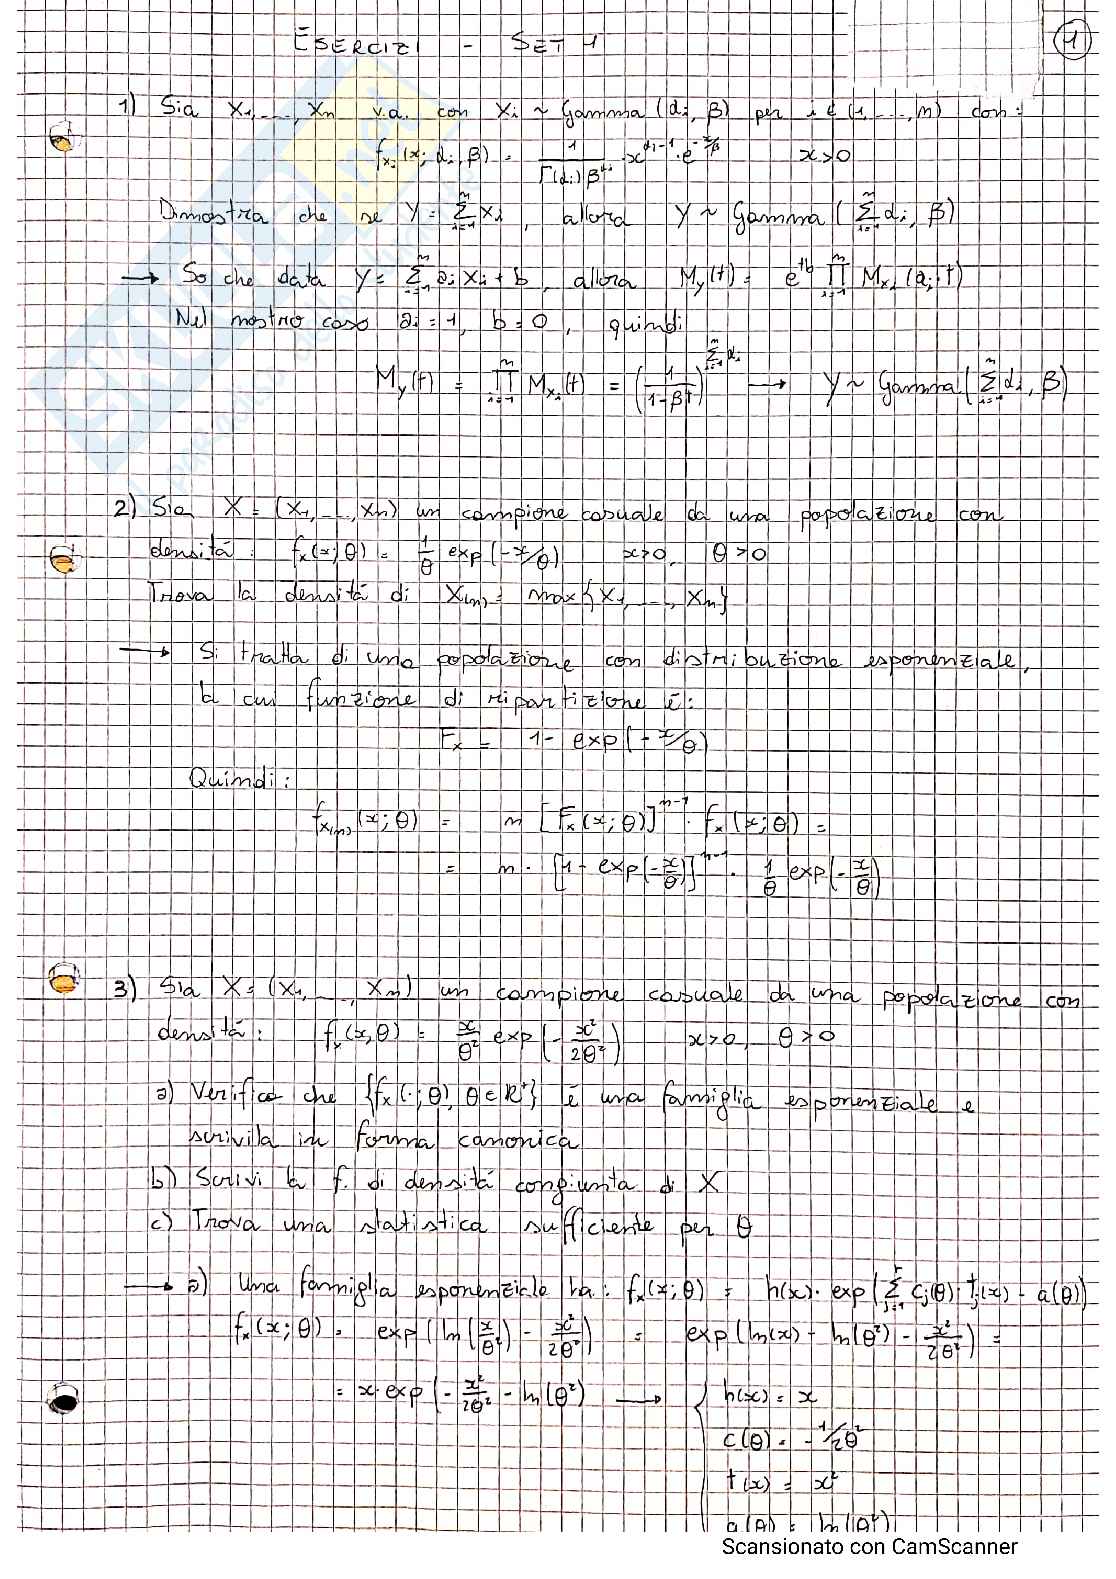 ESERCIZI - SET 1
1
1) Sia X1,...,Xn v.a. con Xi ~ Gamma(αi, β) per i ∈ (1,...,n) con:
fXi(x; αi, β) = 1/(Γ(αi) β^αi) · x^(αi-1) · e^(-x/β) x>0
Dimostra che se Y = Σ_{i=1}^n Xi, allora Y ~ Gamma(Σ_{i=1}^n αi, β)
→ So che data Y = Σ_{i=1}^n ai Xi + b, allora My(t) = e^(tb) Π_{i=1}^n MXi(ai·t)
Nel nostro caso ai = 1, b = 0, quindi
My(t) = Π_{i=1}^n MXi(t) = (1/(1-βt))^(Σ_{i=1}^n αi) → Y ~ Gamma(Σ_{i=1}^n αi, β)
2) Sia X = (X1,...,Xn) un campione casuale da una popolazione con
densità: fx(x;θ) = 1/θ exp(-x/θ) x>0, θ>0
Trova la densità di X(n) = max{X1,...,Xn}
→ Si tratta di una popolazione con distribuzione esponenziale,
la cui funzione di ripartizione è:
Fx = 1 - exp(-x/θ)
Quindi:
fX(n)(x;θ) = n [Fx(x;θ)]^(n-1) · fx(x;θ) =
= n · [1 - exp(-x/θ)]^(n-1) · 1/θ exp(-x/θ)
3) Sia X = (X1,...,Xn) un campione casuale da una popolazione con
densità: fx(x,θ) = x/θ² exp(-x²/2θ²) x>0, θ>0
a) Verifica che {fx(·;θ), θ∈R⁺} è una famiglia esponenziale e
scrivila in forma canonica
b) Scrivi la f. di densità congiunta di X
c) Trova una statistica sufficiente per θ
→ a) Una famiglia esponenziale ha: fx(x;θ) = h(x)· exp(Σ_{j=1}^r cj(θ)·tj(x) - a(θ))
fx(x;θ) = exp(ln(x/θ²) - x²/2θ²) = exp(ln(x) - ln(θ²) - x²/2θ²) =
= x·exp(-x²/2θ² - ln(θ²)) → { h(x) = x
c(θ) = -1/2θ²
t(x) = x²
a(θ) = ln(θ²)
Scansionato con CamScanner